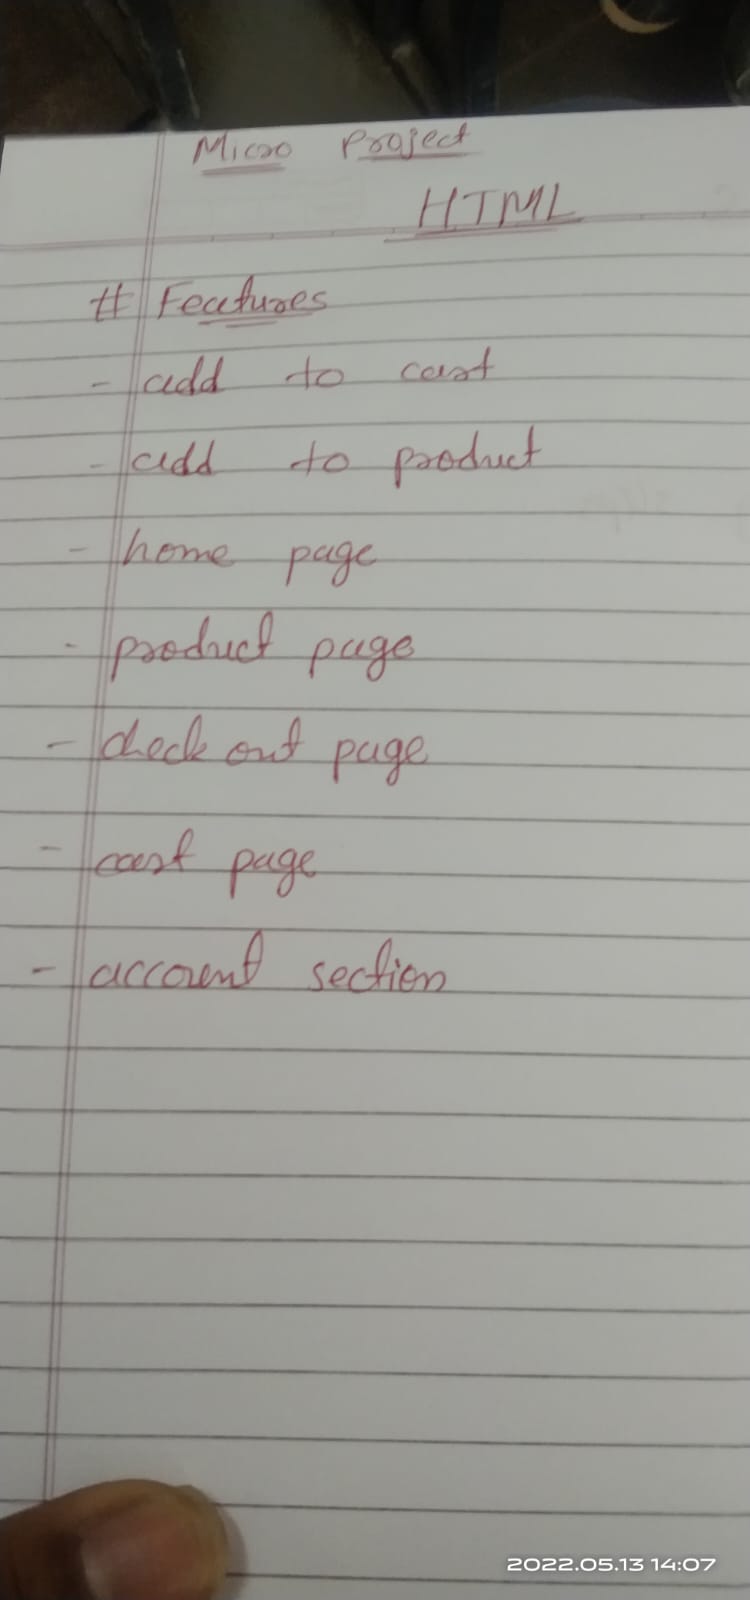 Micro Project
HTML
# Features
- add to cart
- add to product
- home page
- product page
- check out page
- cart page
- account section
2022.05.13 14:07